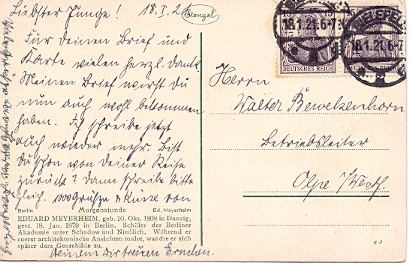 Liebster Junge! 18.I.21
Stengel
Für deinen Brief und
Karte vielen herzl. Dank
Meinen Brief wirst du
nun auch wohl bekommen
haben. Ich schreibe jetzt
auch wieder mehr. Bist
du schon von deiner Reise
zurück? Dann schreibe bitte
gleich. 1000 Grüße & Küsse von
Berlin Morgenstunde Ed. Meyerheim
EDUARD MEYERHEIM, geb. 10. Okt. 1808 in Danzig,
gest. 18. Jan. 1879 in Berlin. Schüler der Berliner
Akademie unter Schadow und Niedlich. Während er
zuerst architektonische Ansichten malte, wandte er sich
später dem Genrebilde zu.
DEUTSCHES REICH
18.1.21.6-7
BIELEFELD
18.1.21.6-7
Herrn
Walter Bewelzenhorn
Betriebsleiter
Olpe i/Westf.